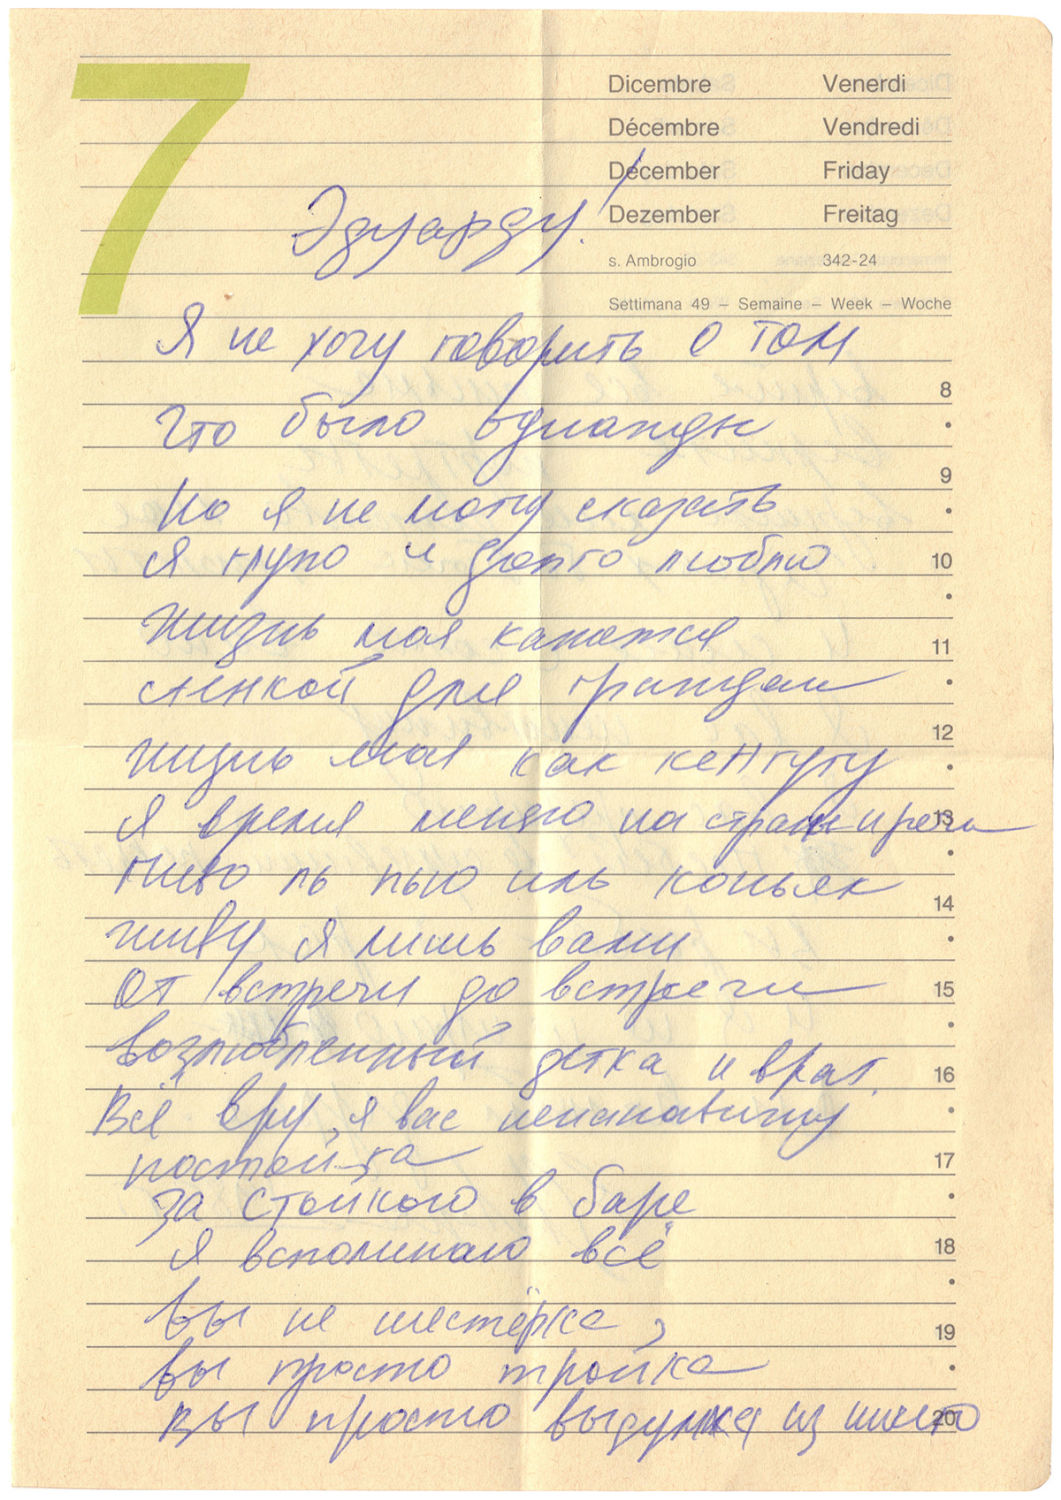 7
Dicembre Venerdi
Décembre Vendredi
December Friday
Dezember Freitag
s. Ambrogio 342-24
Settimana 49 – Semaine – Week – Woche
Эдуарду!
Я не хочу говорить о том
8
Что было однажды
9
Но я не могу сказать
Я глупо и долго люблю
10
Жизнь моя кажется
11
стенкой для граждан
12
Жизнь моя как кенгуру
Я время меняю на страны и речи
13
Пиво ль пью иль коньяк
14
живу я лишь вами
От встречи до встречи
15
возлюбленный детка и враг.
16
Всё вру, я вас ненавижу
постой-ка
17
За стойкою в баре
Я вспоминаю всё
18
Вы не шестёрка,
19
Вы просто тройка
Вы просто выдумка из
20